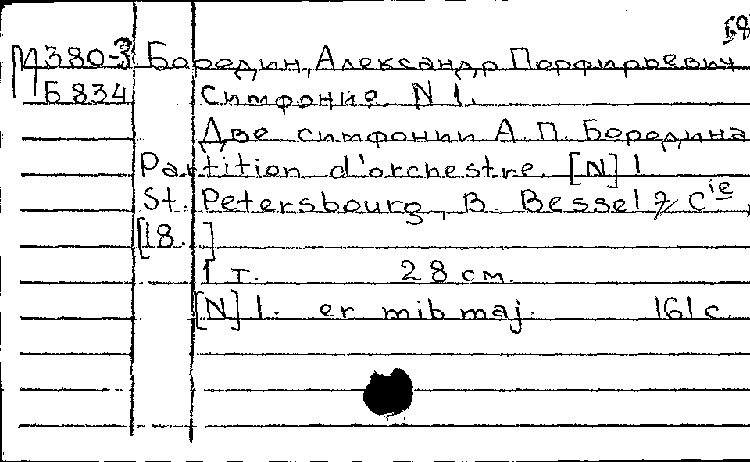 58
М380-3 Бородин, Александр Порфирьевич
Б834 Симфоние N 1.
Две симфонии А.П. Бородина
Partition d'orchestre. [N] 1
St. Petersbourg, B. Bessel & Cie,
[18. ]
1 т. 28 см.
[N] 1. en mib maj. 161 с